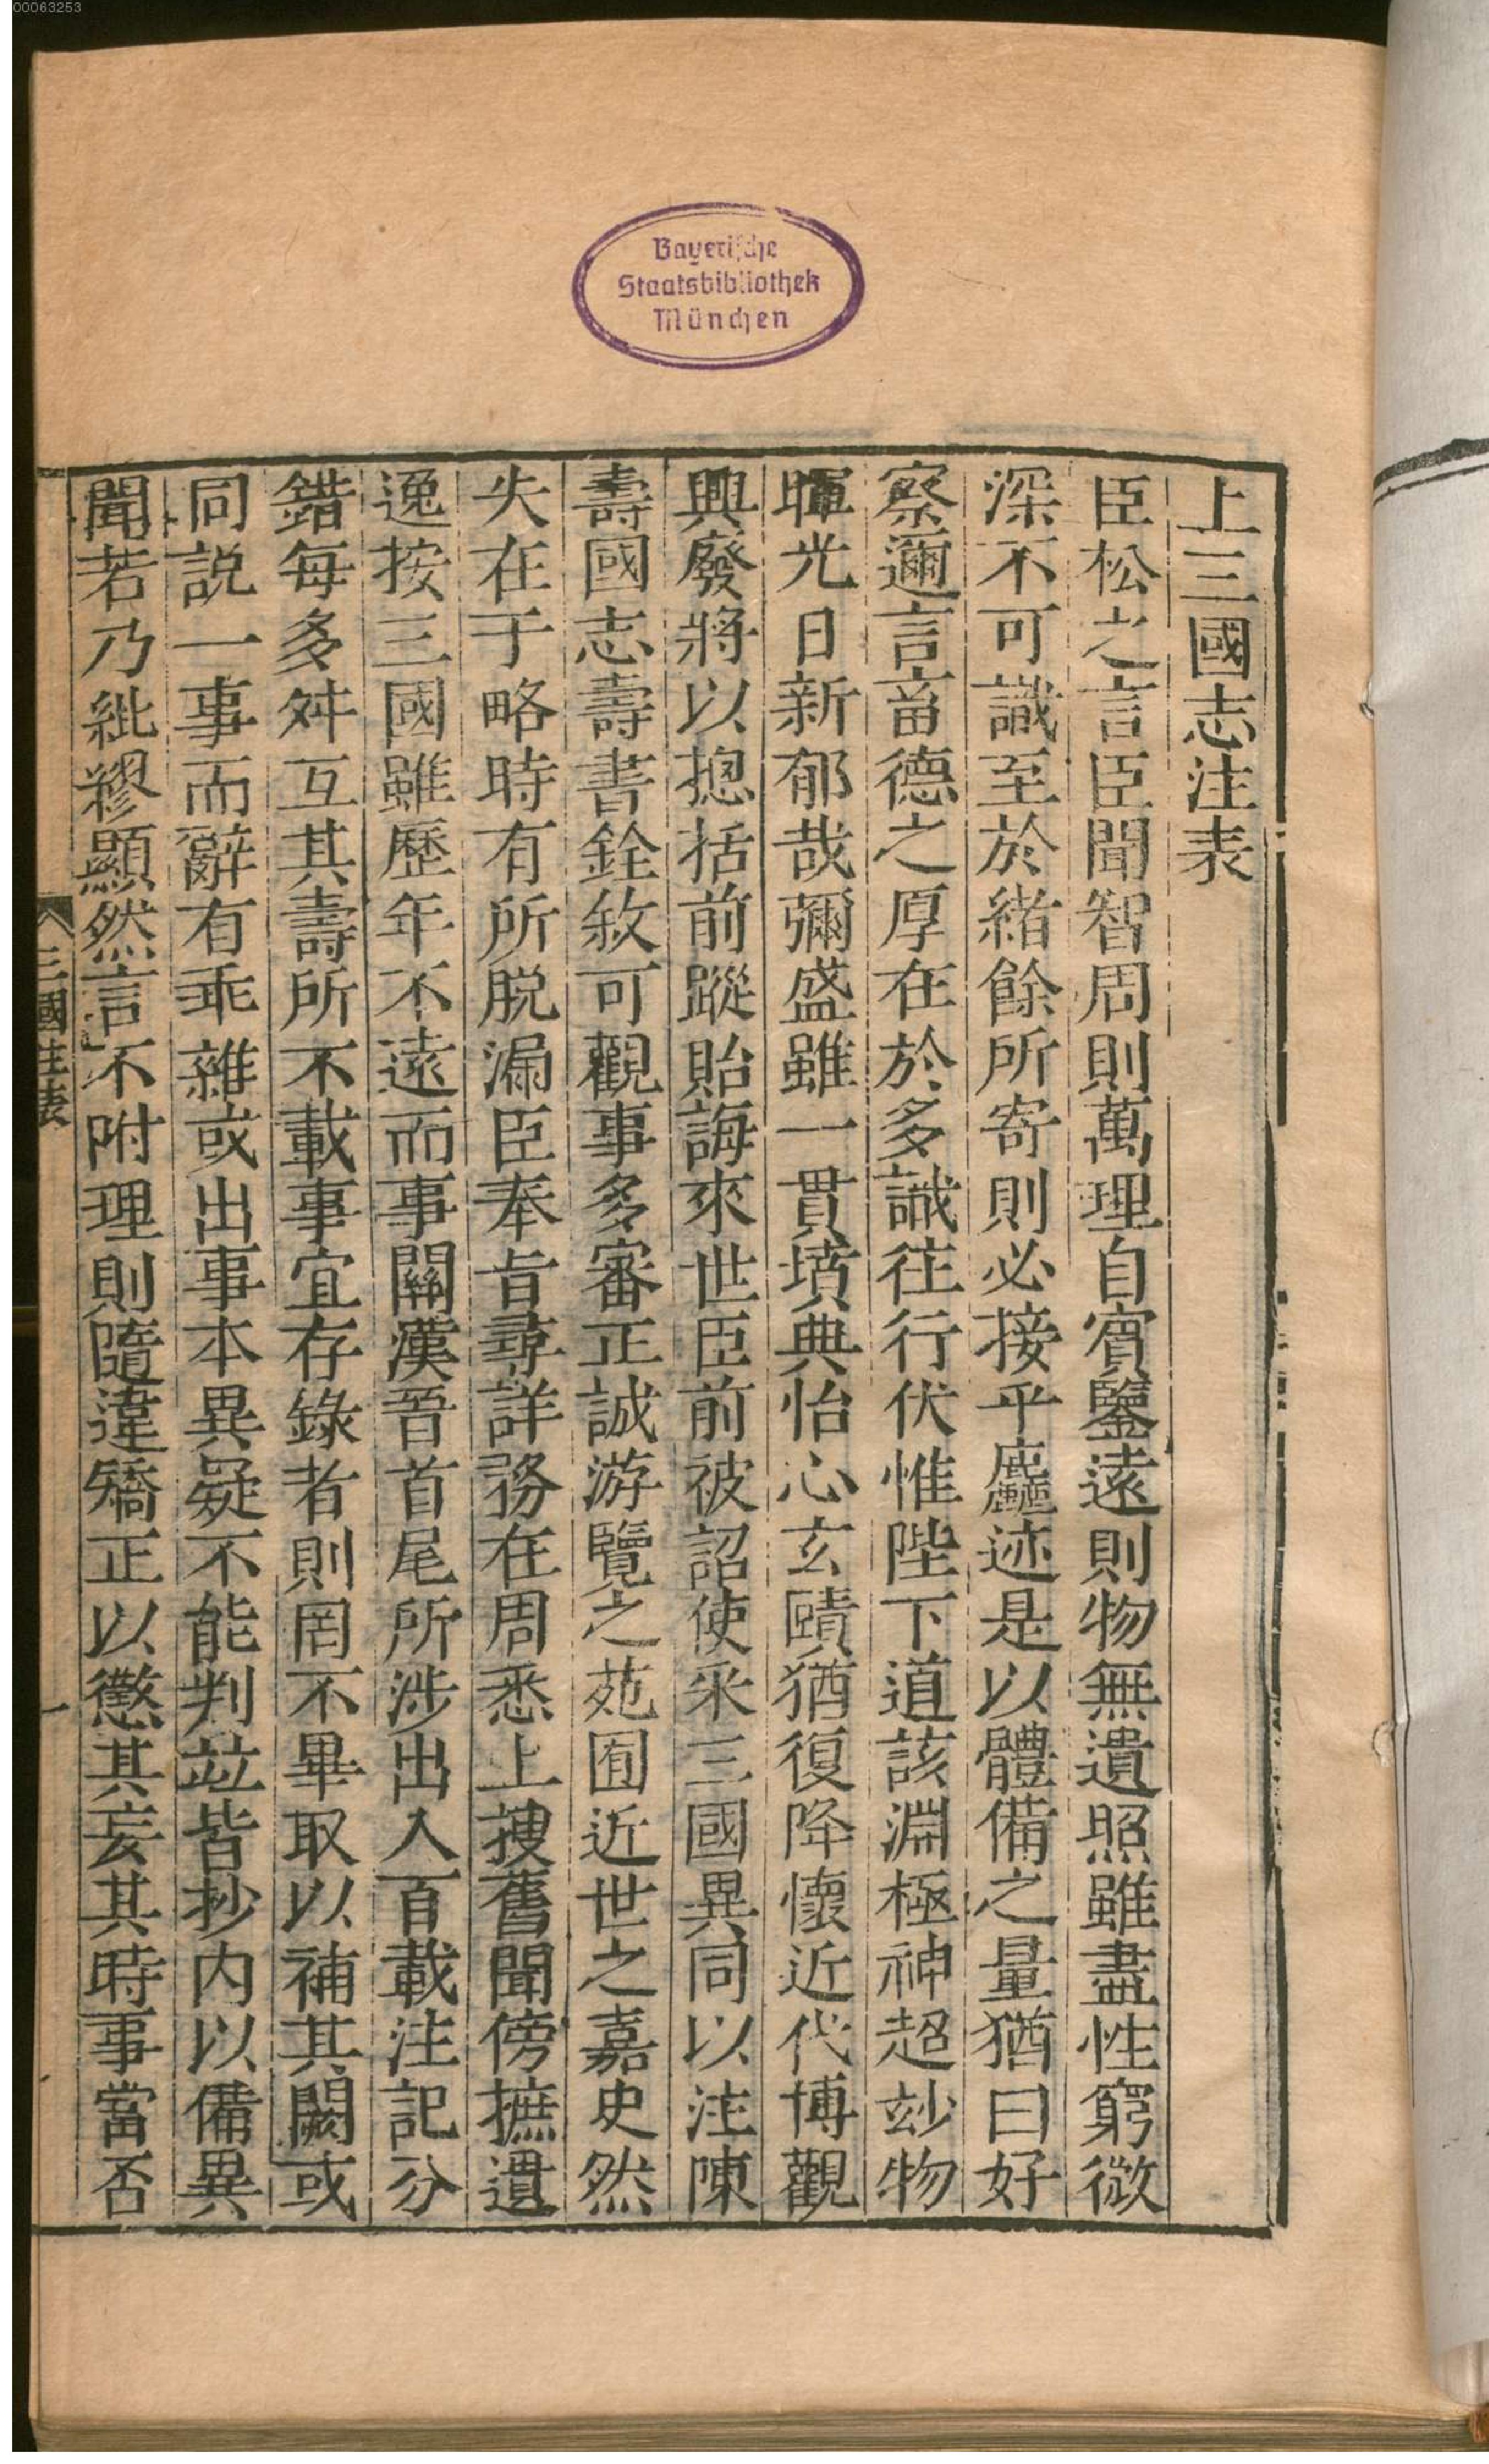 00063253
Bayerische
Staatsbibliothek
München
上三國志注表
臣松之言臣聞智周則萬理自賓鑒遠則物無遺照雖盡性窮微
深不可識至於緒餘所寄則必接乎麤迹是以體備之量猶曰好
察邇言畜德之厚在於多識往行伏惟陛下道該淵極神超玅物
暉光日新郁哉彌盛雖一貫墳典怡心玄賾猶復降懷近代博觀
興廢將以揔括前蹤貽誨來世臣前被詔使采三國異同以注陳
壽國志壽書銓敘可觀事多審正誠游覽之苑囿近世之嘉史然
失在于略時有所脱漏臣奉旨尋詳務在周悉上搜舊聞傍摭遺
逸按三國雖歷年不遠而事關漢晉首尾所涉出入百載注記分
錯每多舛互其壽所不載事宜存錄者則罔不畢取以補其闕或
同説一事而辭有乖雜或出事本異疑不能判竝皆抄內以備異
聞若乃紕繆顯然言不附理則隨違矯正以懲其妄其時事當否
三國注表
一